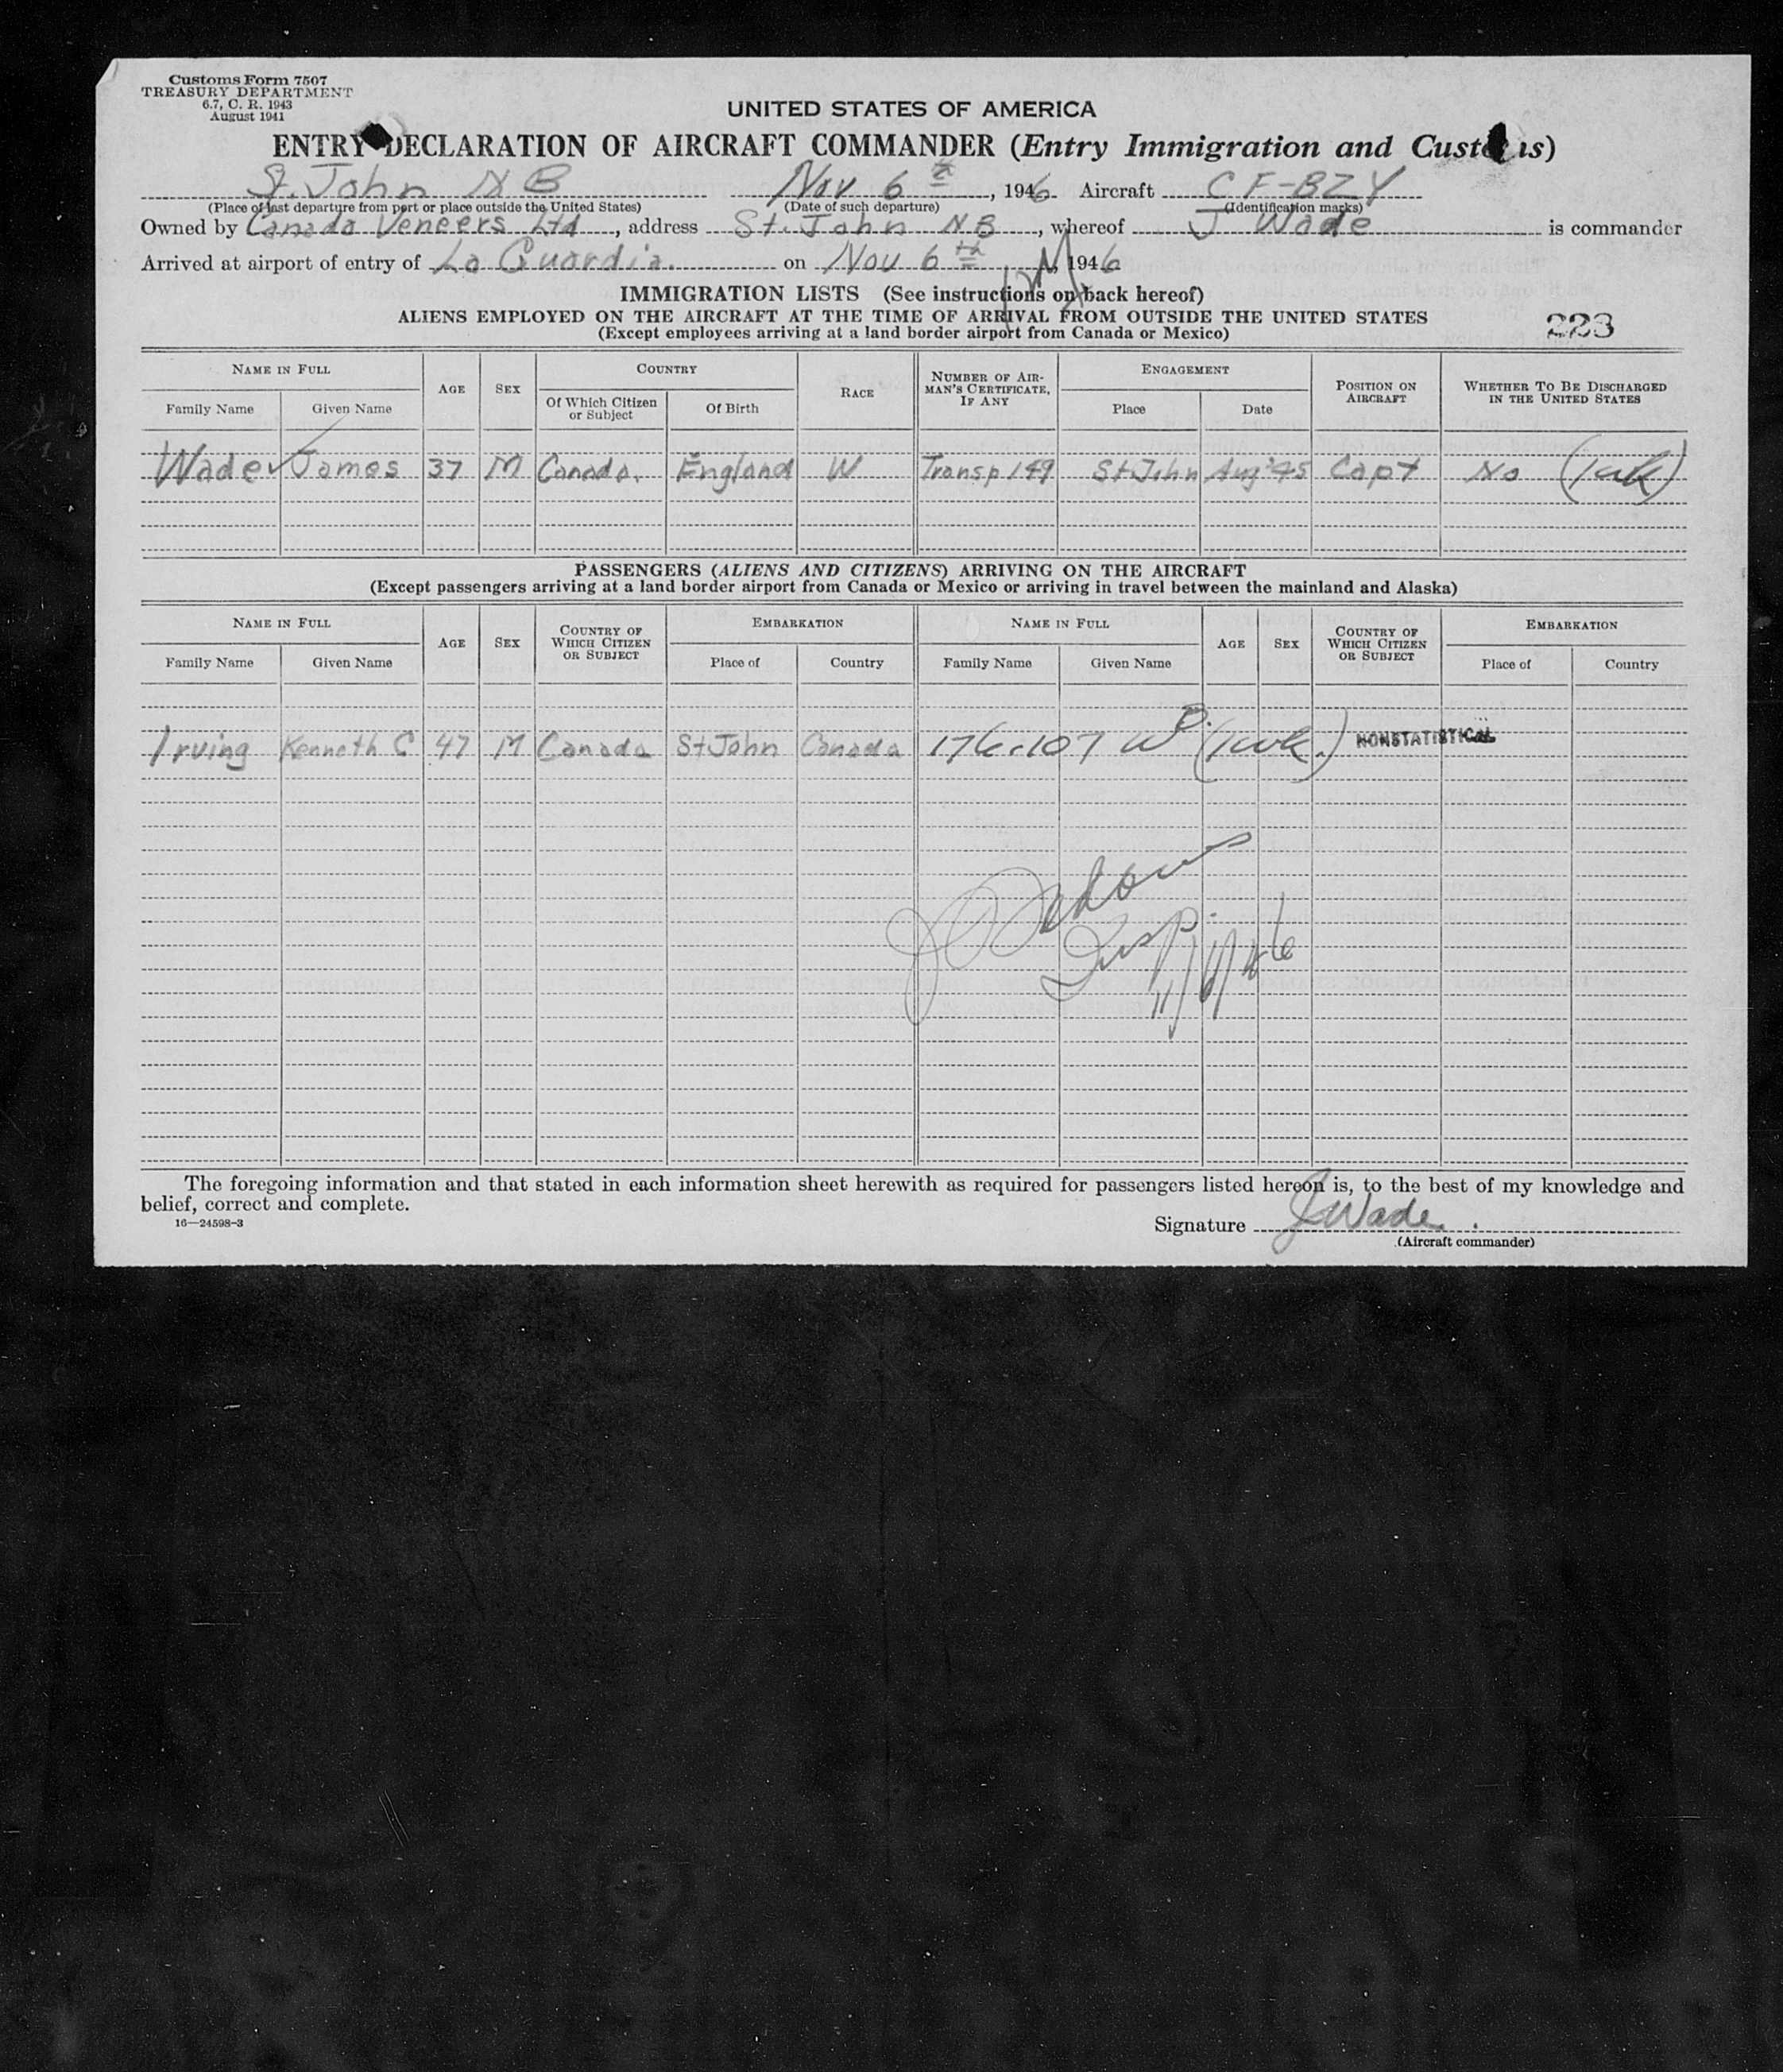 Customs Form 7507
TREASURY DEPARTMENT
6.7, C. R. 1943
August 1941
UNITED STATES OF AMERICA
ENTRY DECLARATION OF AIRCRAFT COMMANDER (Entry Immigration and Customs)
St. John N B Nov 6th, 1946 Aircraft CF-BZY
(Place of last departure from port or place outside the United States) (Date of such departure) (Identification marks)
Owned by Canada Veneers Ltd, address St. John N.B, whereof J Wade is commander
Arrived at airport of entry of La Guardia. on Nov 6th, 1946
IMMIGRATION LISTS (See instructions on back hereof)
ALIENS EMPLOYED ON THE AIRCRAFT AT THE TIME OF ARRIVAL FROM OUTSIDE THE UNITED STATES
(Except employees arriving at a land border airport from Canada or Mexico)
223
NAME IN FULL AGE SEX COUNTRY RACE NUMBER OF AIRMAN'S CERTIFICATE, IF ANY ENGAGEMENT POSITION ON AIRCRAFT WHETHER TO BE DISCHARGED IN THE UNITED STATES
Family Name Given Name Of Which Citizen or Subject Of Birth Place Date
Wade James 37 M Canada. England W Transp 149 St John Aug '45 Capt No (1wk)
PASSENGERS (ALIENS AND CITIZENS) ARRIVING ON THE AIRCRAFT
(Except passengers arriving at a land border airport from Canada or Mexico or arriving in travel between the mainland and Alaska)
NAME IN FULL AGE SEX COUNTRY OF WHICH CITIZEN OR SUBJECT EMBARKATION NAME IN FULL AGE SEX COUNTRY OF WHICH CITIZEN OR SUBJECT EMBARKATION
Family Name Given Name Place of Country Family Name Given Name Place of Country
Irving Kenneth C 47 M Canada St John Canada (1wk.) NONSTATISTICAL
Insp.
11/6/46
The foregoing information and that stated in each information sheet herewith as required for passengers listed hereon is, to the best of my knowledge and
belief, correct and complete.
16—24598-3
Signature J Wade.
(Aircraft commander)